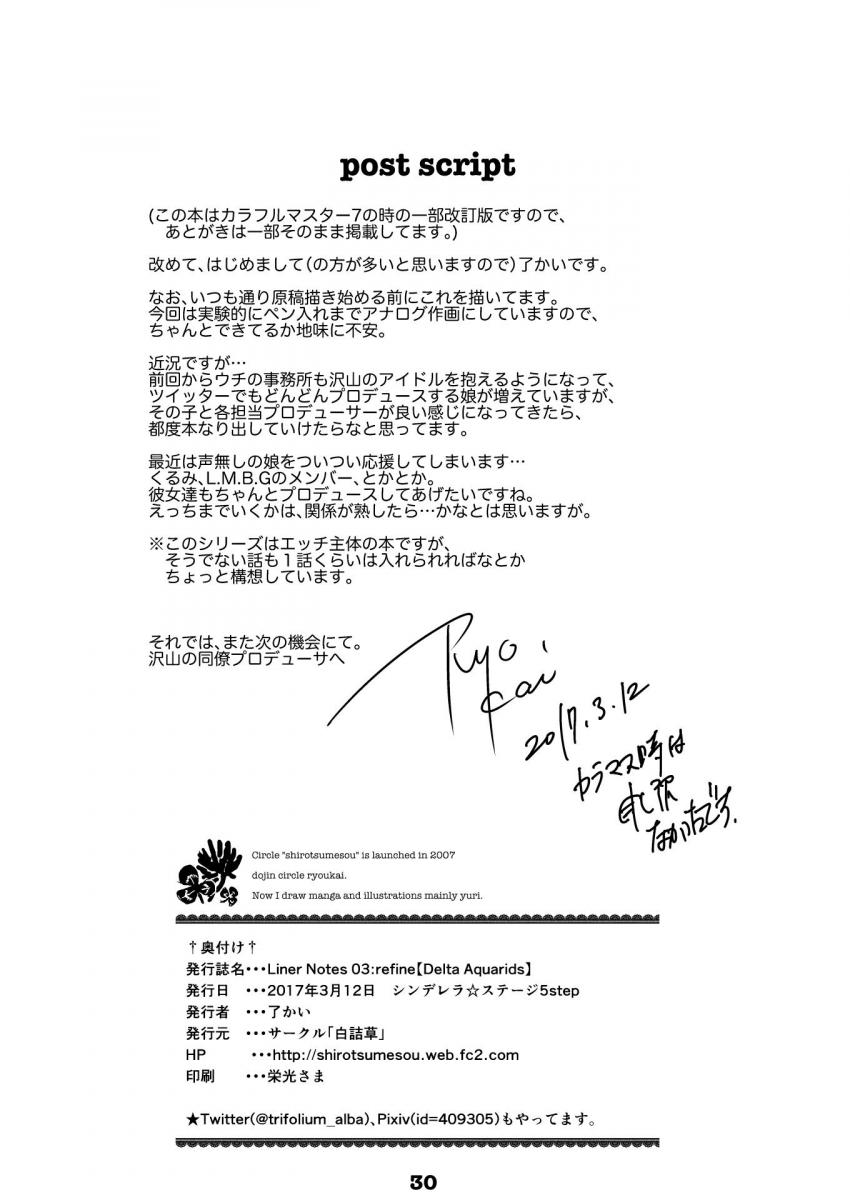 post script
(この本はカラフルマスター7の時の一部改訂版ですので、
あとがきは一部そのまま掲載してます。)
改めて、はじめまして(の方が多いと思いますので)了かいです。
なお、いつも通り原稿描き始める前にこれを描いてます。
今回は実験的にペン入れまでアナログ作画にしていますので、
ちゃんとできてるか地味に不安。
近況ですが…
前回からウチの事務所も沢山のアイドルを抱えるようになって、
ツイッターでもどんどんプロデュースする娘が増えていますが、
その子と各担当プロデューサーが良い感じになってきたら、
都度本なり出していけたらなと思ってます。
最近は声無しの娘をついつい応援してしまいます…
くるみ、L.M.B.Gのメンバー、とかとか。
彼女達もちゃんとプロデュースしてあげたいですね。
えっちまでいくかは、関係が熟したら…かなとは思いますが。
※このシリーズはエッチ主体の本ですが、
そうでない話も１話くらいは入れられればなとか
ちょっと構想しています。
それでは、また次の機会にて。
沢山の同僚プロデューサへ
Ryo
Kai
2017.3.12
カラマス時は
なかったです.
Circle "shirotsumesou" is launched in 2007
dojin circle ryoukai.
Now I draw manga and illustrations mainly yuri.
†奥付け†
発行誌名・・・Liner Notes 03:refine【Delta Aquarids】
発行日 ・・・2017年3月12日　シンデレラ☆ステージ5step
発行者 ・・・了かい
発行元 ・・・サークル「白詰草」
HP ・・・http://shirotsumesou.web.fc2.com
印刷 ・・・栄光さま
★Twitter(@trifolium_alba)、Pixiv(id=409305)もやってます。
30